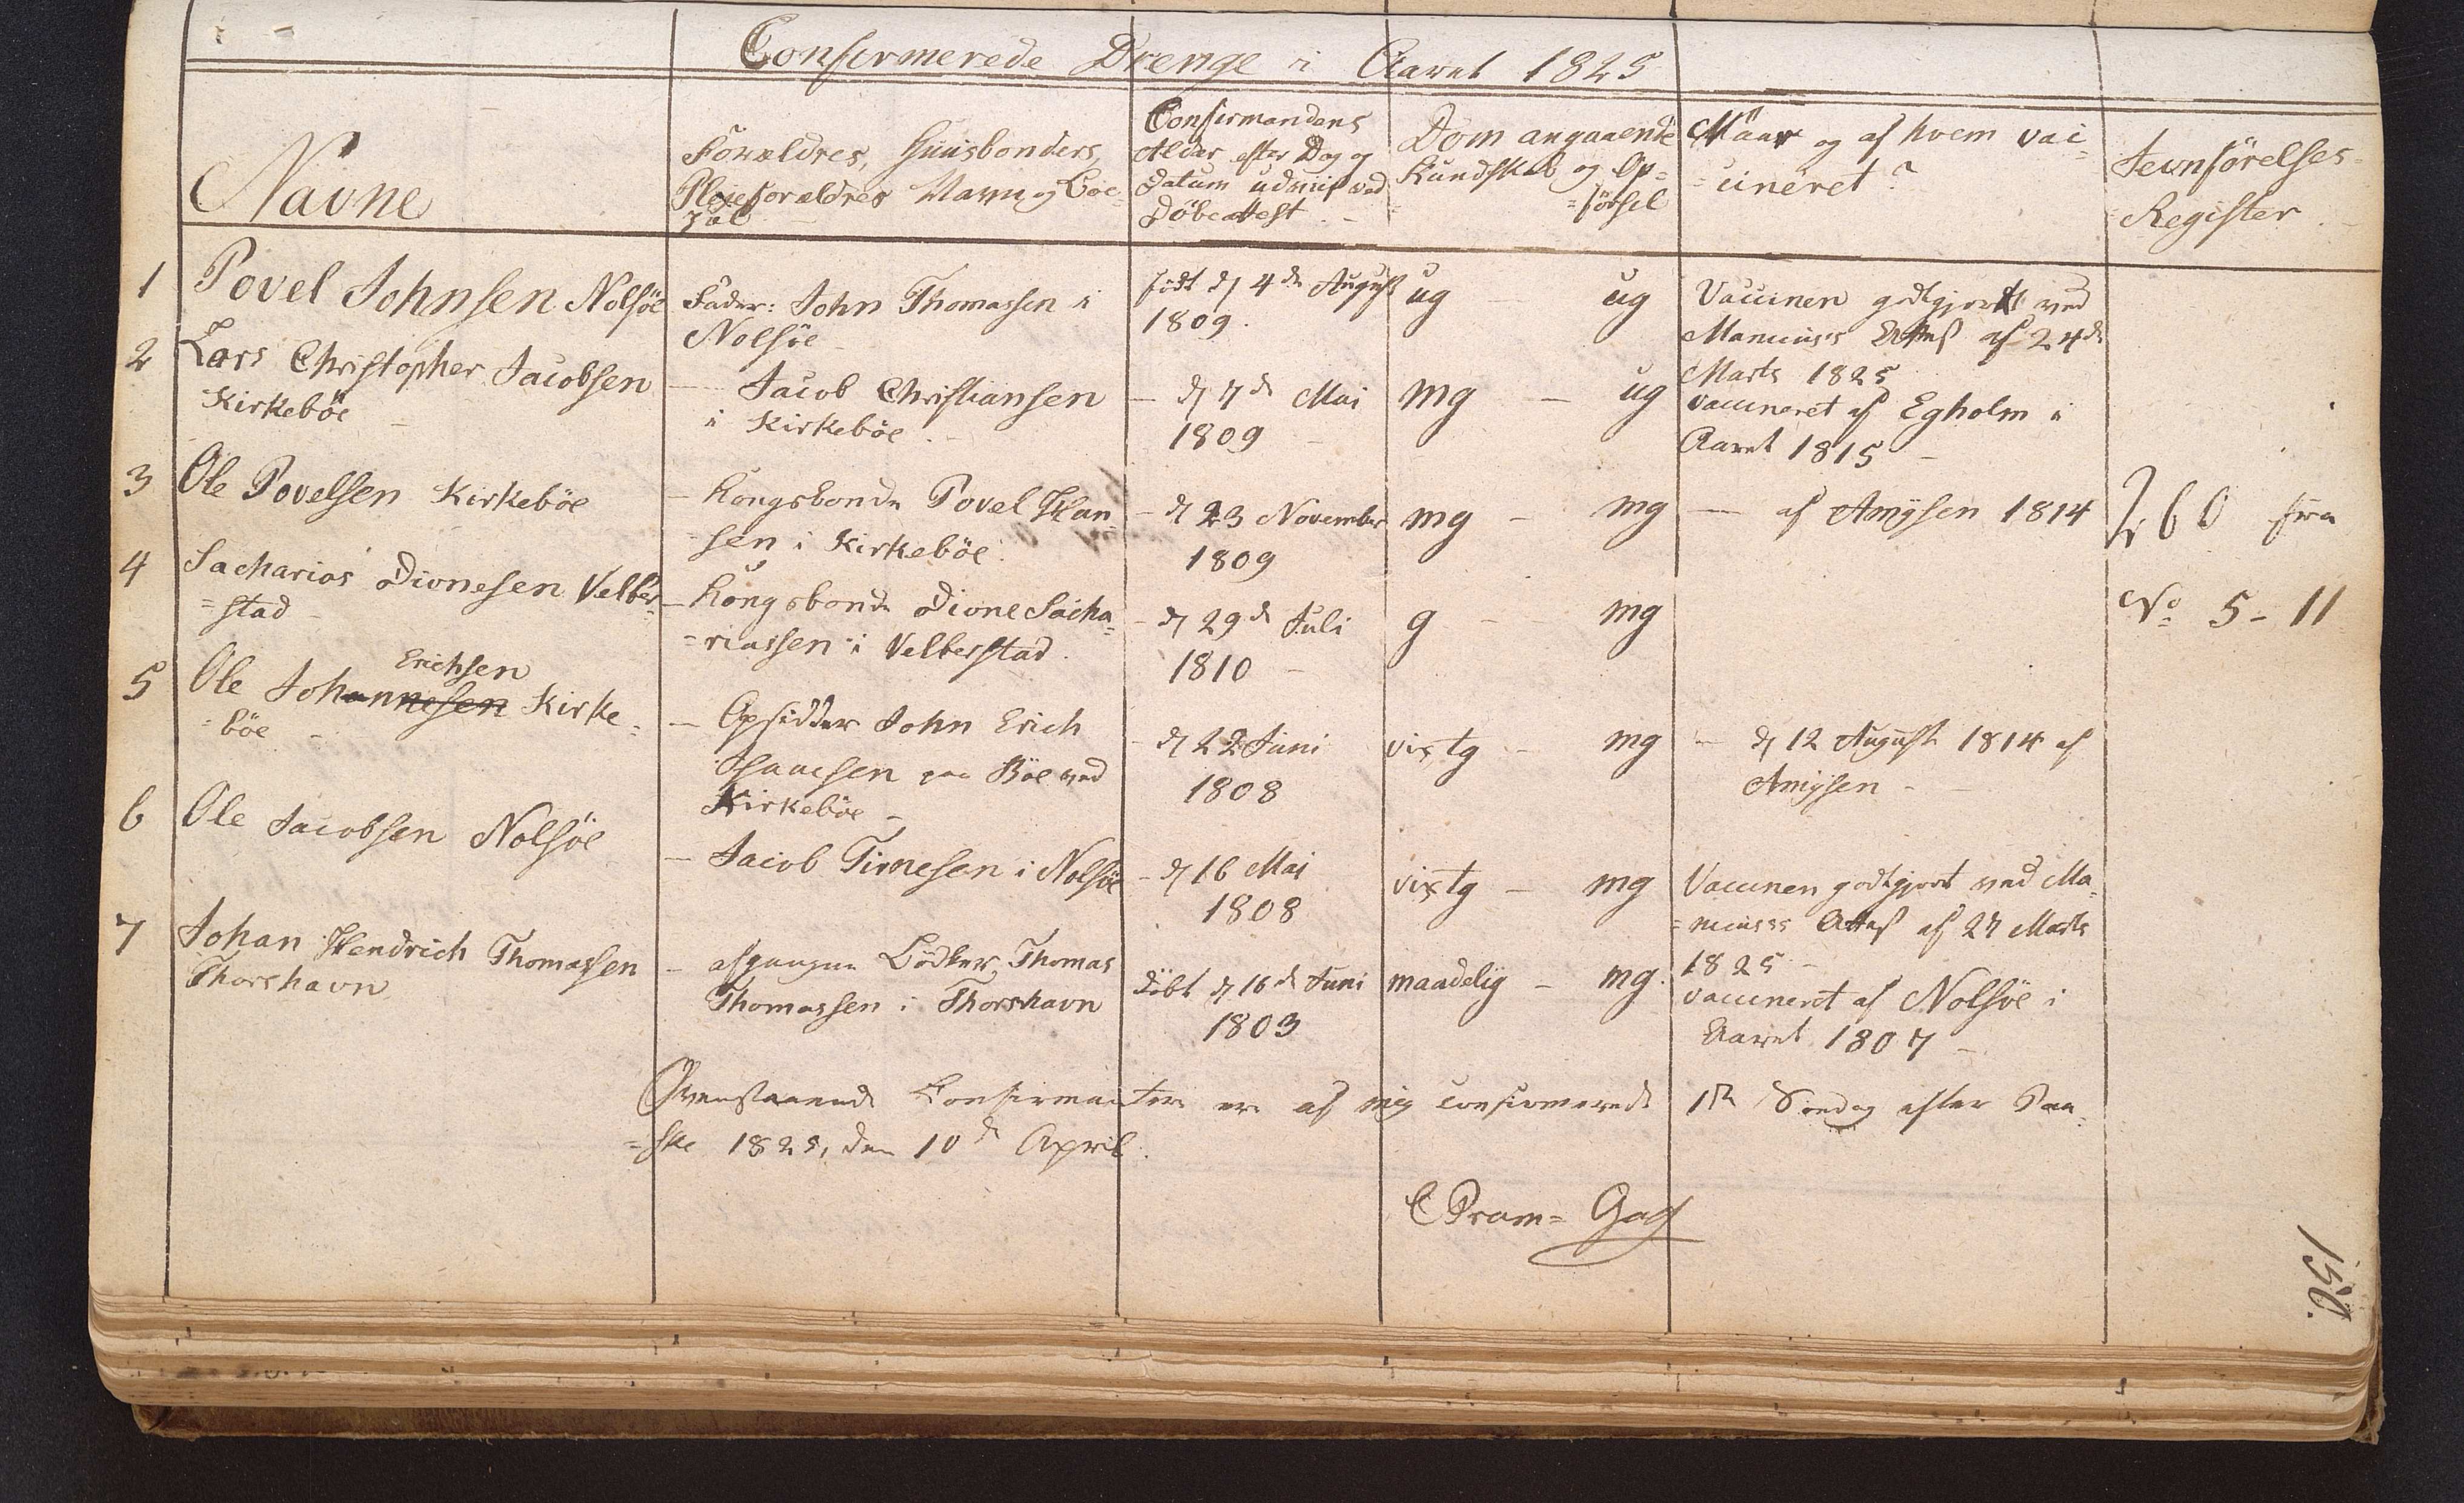 Confirmerede Drenge i Aaret 1825
Navne
Forældres, Huusbonders,
Plejeforældres Navn og Boe-
pæl
Confirmandens
Alder efter Dag og
Datum udviist ved
Døbeattest. -
Dom angaaende
Kundskab og Op=
=førsel
Naar og af hvem vac=
=cineret?
Jevnførelses=
=Register
1 Povel Johnsen Nolsöe
Fader: John Thomassen i
Nolsöe -
født d 4de August
1809.
ug - ug
Vaccinen godtgjort ved
Manicuss Attest af 24de
Marts 1825
2 Lars Christopher Jacobsen
Kirkeböe -
- Jacob Christiansen
i Kirkeböe. -
- d 7de Mai
1809 -
mg - ug
vaccineret af Egholm i
Aaret 1815 -
3 Ole Povelsen Kirkeböe
- Kongsbonde Povel Han-
=sen i Kirkeböe.
- d 23 November
1809
mg - mg
- af Amysen 1814
260 fra
No 5 - 11
4 Sacharias Dionesen Velber=
=stad -
- Kongsbonde Dione Sacha=
=riassen i Velberstad.
- d 29de Juli
1810 -
g - mg
5 Ole Johannesen Kirke=
Erichsen
=böe -
- Opsidder John Erich
Isaacsen paa Böe ved
Kirkeböe -
- d 22 Juni
1808
vistg - mg
- d 12 August 1814 af
Amysen -
6 Ole Jacobsen Nolsöe
- Jacob Timesen i Nolsöe
- d 16 Mai
1808
vistg - mg
Vaccinen godtgjort ved Ma=
=nicuss Attest af 27 Marts
1825 -
7 Johan Hendrich Thomassen
Thorshavn
- afgangne Bødker, Thomas
Thomassen i Thorshavn
döbt d 16de Juni
1803
maadelig - mg.
vaccineret af Nolsöe i
Aaret 1807 -
Ovenstaaende Confirmanter ere af mig confirmerede 1ste Søndag efter Paa=
=ske 1825, den 10de April.
C Pram= Gad
150.